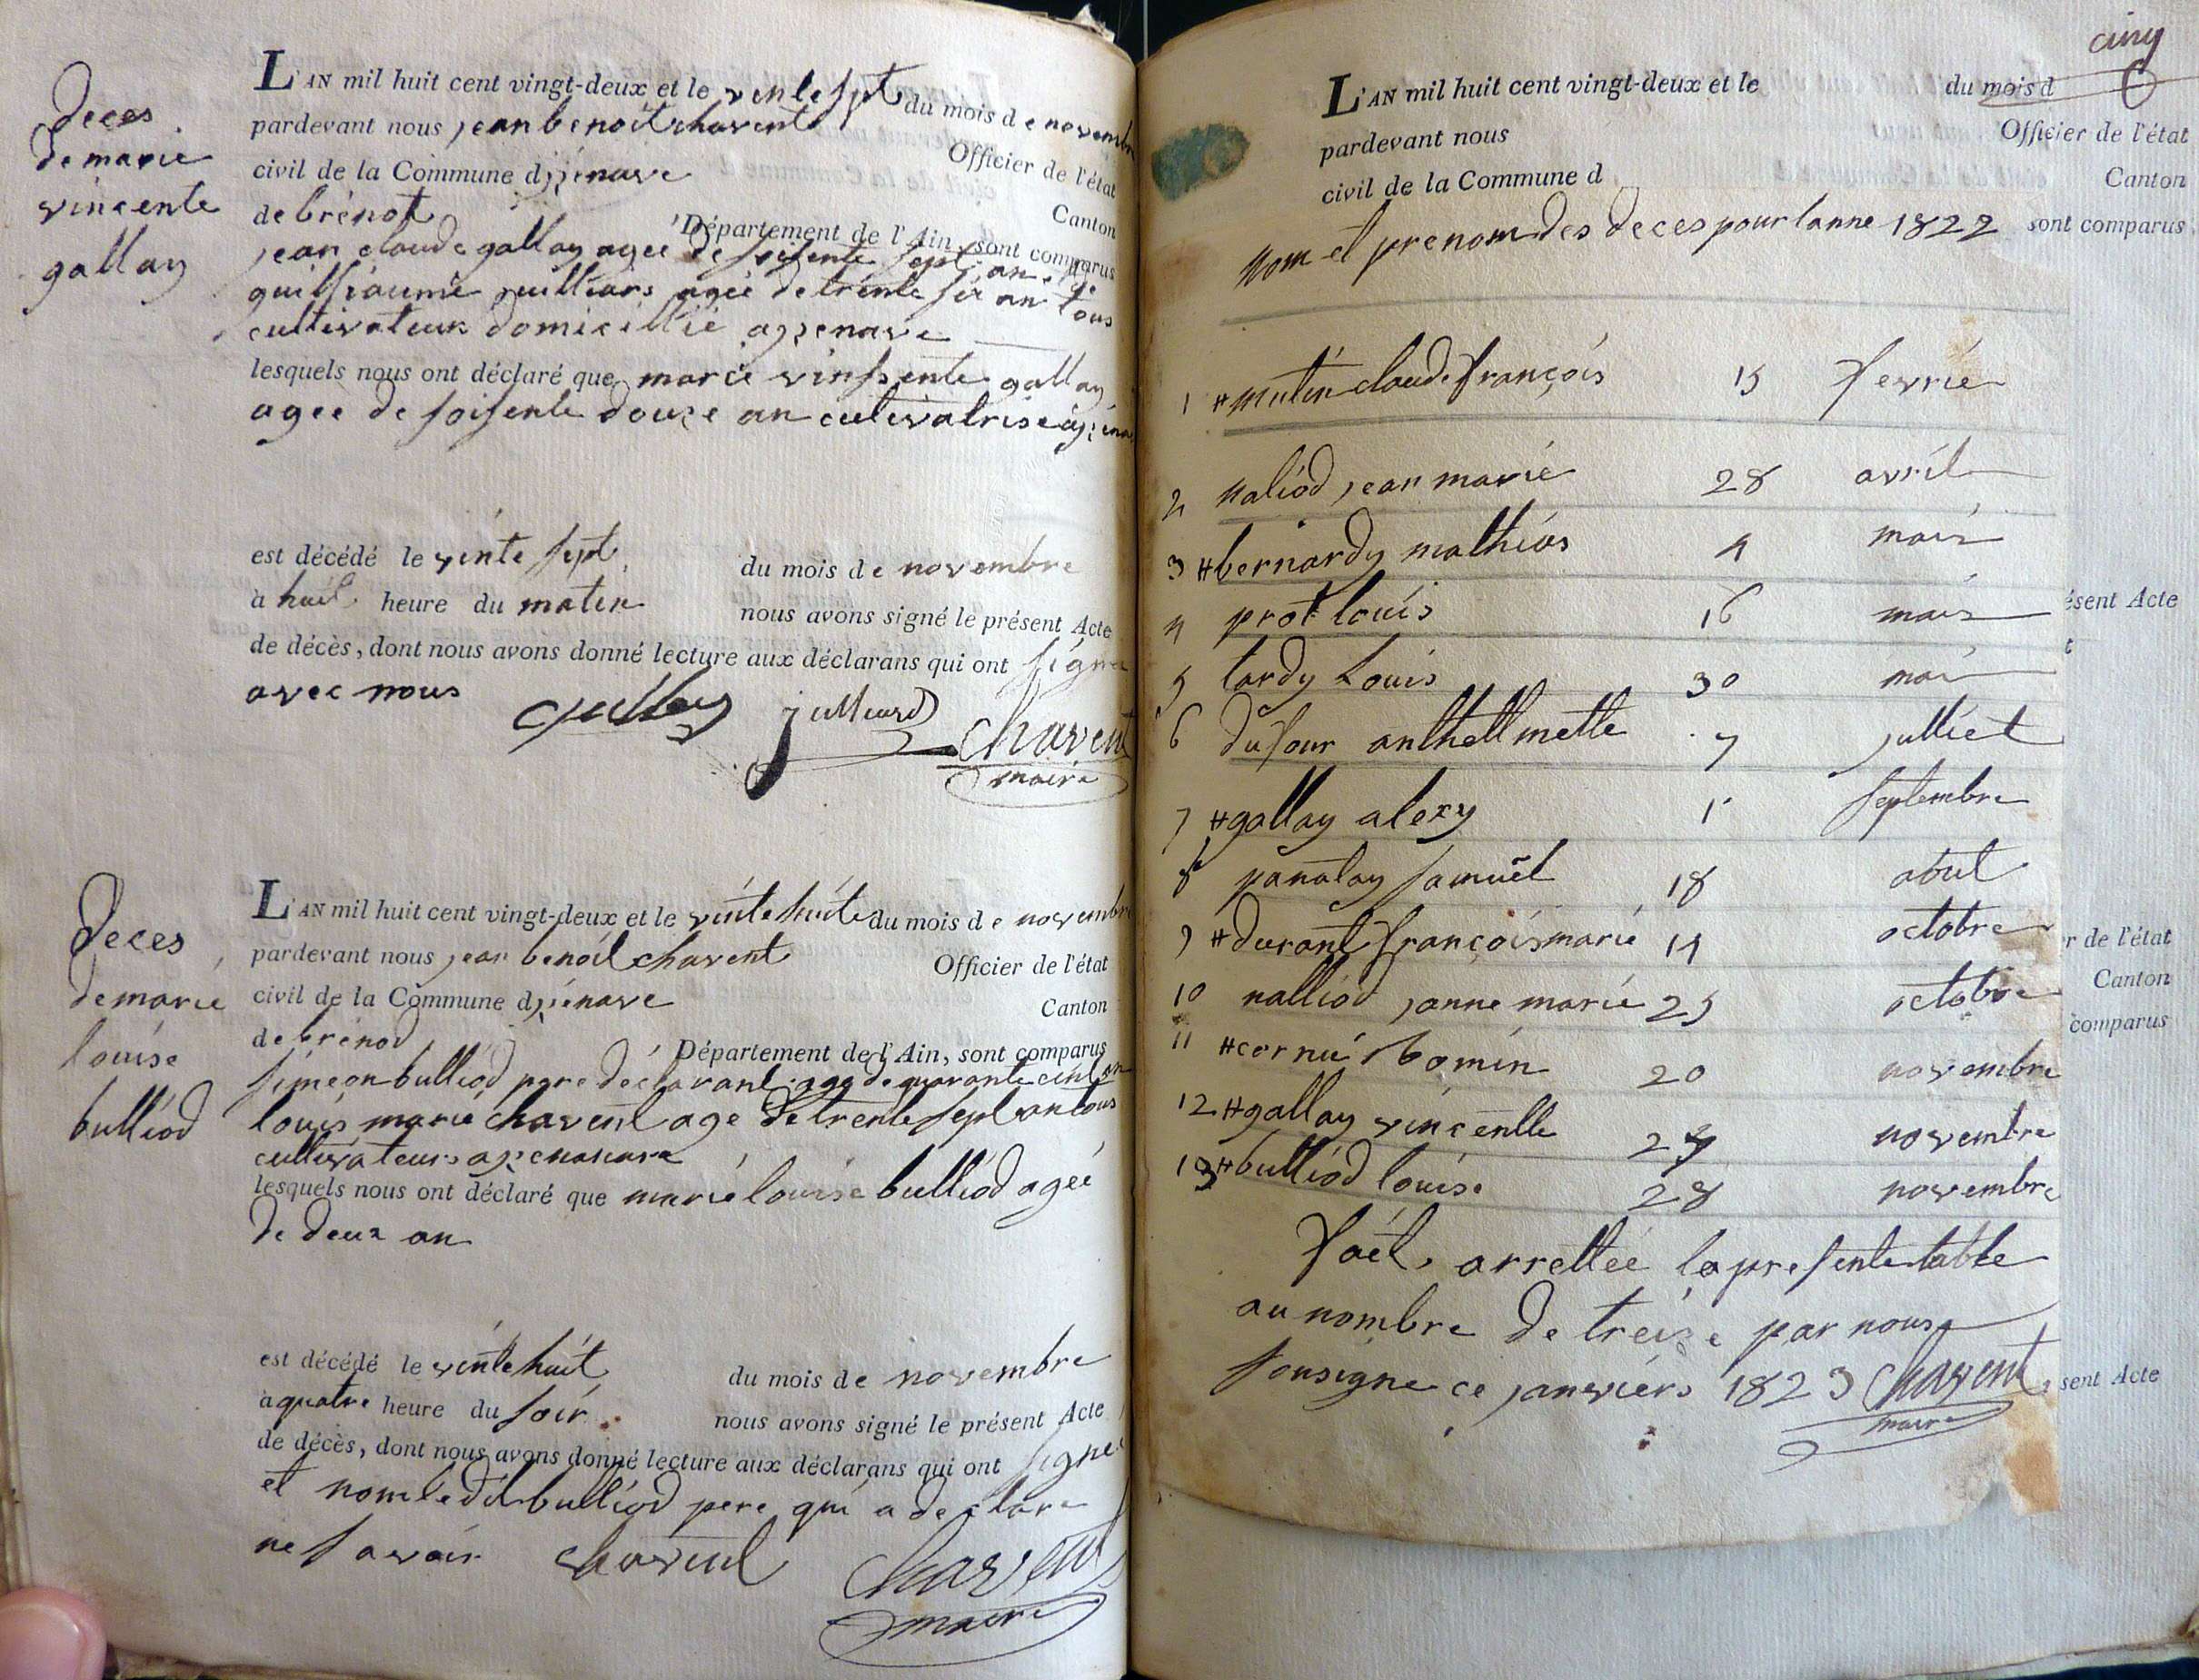 deces
de marie
vincente
gallay
L'AN mil huit cent vingt-deux et le vente sept du mois de novembre
pardevant nous jean benoit chavent Officier de l'état
civil de la Commune d izenave Canton
de brénot Département de l'Ain, sont comparus
jean claude gallay agee de soisente sept an et
guilliaume juilliars agée de trente six an tous
cultivateurs domicillié a izenave
lesquels nous ont déclaré que marie vinssente gallay
agee de soisente douze an cultivatrise a
est décédé le vinte sept du mois de novembre
à huit heure du matin nous avons signé le présent Acte
de décès, dont nous avons donné lecture aux déclarans qui ont signé
avec nous gallay juilliard chavent
maire
deces
de marie
louise
bulliod
L'AN mil huit cent vingt-deux et le vinte huite du mois de novembre
pardevant nous jean benoit chavent Officier de l'état
civil de la Commune d izenave Canton
de brénod Département de l'Ain, sont comparus
siméon bulliod pere déclarant age de quarante cint an
louis marie chavent age de trente sept an tous
cultivateurs a
lesquels nous ont déclaré que marie louise bulliod agée
de deux an
est décédé le vinte huit du mois de novembre
à quatre heure du soir nous avons signé le présent Acte
de décès, dont nous avons donné lecture aux déclarans qui ont signe
et nom ledit bulliod pere qui a declare
ne savoir chavent chavent
maire
cinq
L'AN mil huit cent vingt-deux et le du mois d
pardevant nous Officier de l'état
civil de la Commune d Canton
nom et prenom des deces pour lanne 1822 sont comparus
1 # mutin claude françois 15 fevrié
2 naliod jean marie 28 avril
3 # bernardy mathias 4 mais
4 prot louis 16 mais
5 tardy Louis 30 mai
6 dufour anthellmette 7 julliet
7 # gallay alexy 1 septembre
8 panalay samuel 18
9 # durant françois marie 14 octobre
10 nalliod janne marie 25 octobre
11 # cornu romin 20 novembre
12 # gallay vincentte 27 novembre
13 # bulliod louise 28 novembre
fait arrettée la presente table
au nombre de treize par nous
sousigne ce janviers 1823 Chavent
maire
ésent Acte
r de l'état
Canton
comparus
sent Acte